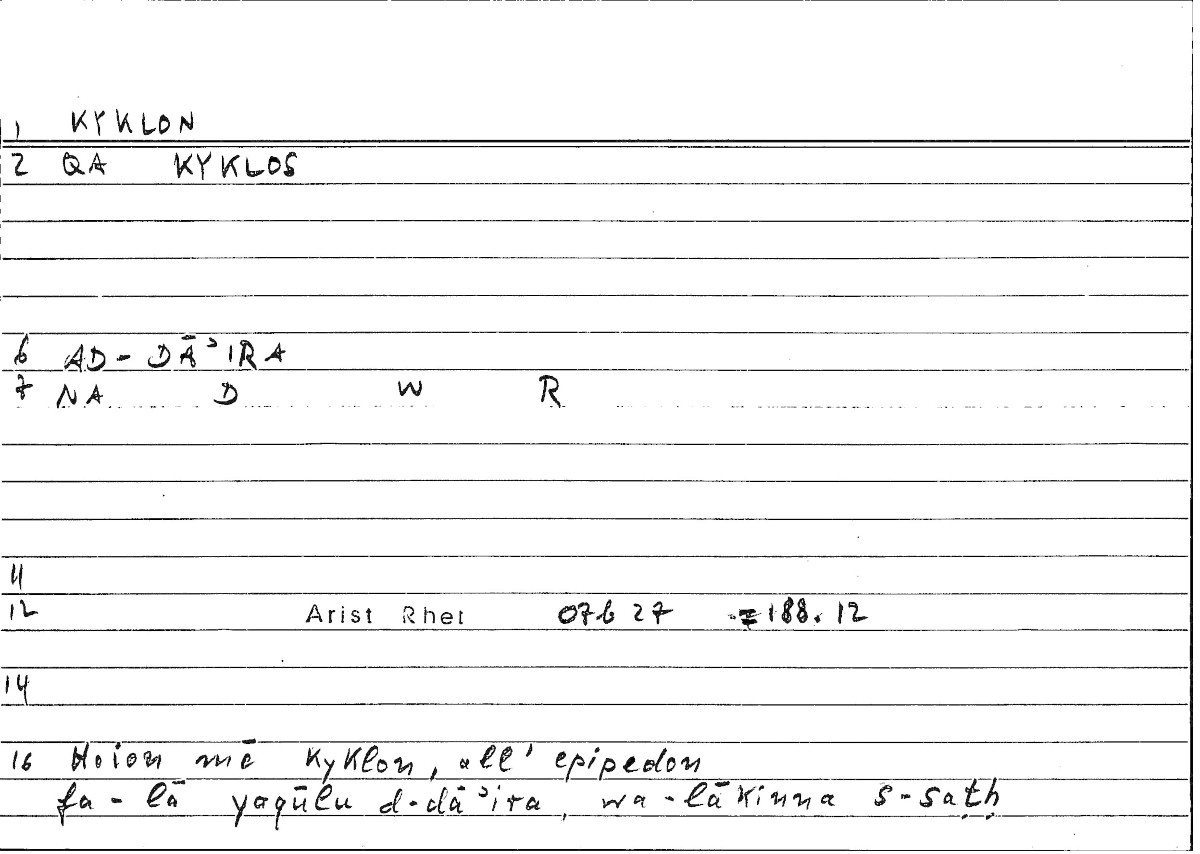 1 KYKLON
2 QA KYKLOS
6 AD-DĀʾIRA
7 NA D W R
11
12 Arist Rhet 07b 27 =188.12
14
16 Hoion mē Kyklon, all' epipedon
fa-lā yaqūlu d-dāʾira, wa-lākinna s-saṭḥ